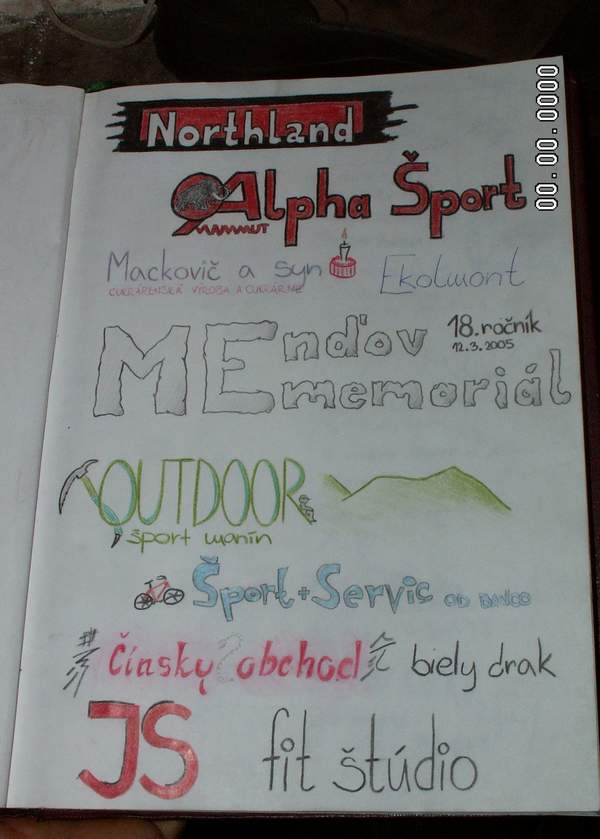 Northland
Alpha Šport
MAMMUT
Mackovič a syn
CUKRÁRENSKÁ VÝROBA A CUKRÁRNE
Ekolmont
MEnďov memoriál
18. ročník
12.3.2005
OUTDOOR
šport manín
Šport + Servic
Čínsky obchod biely drak
JS fit štúdio
00.00.0000